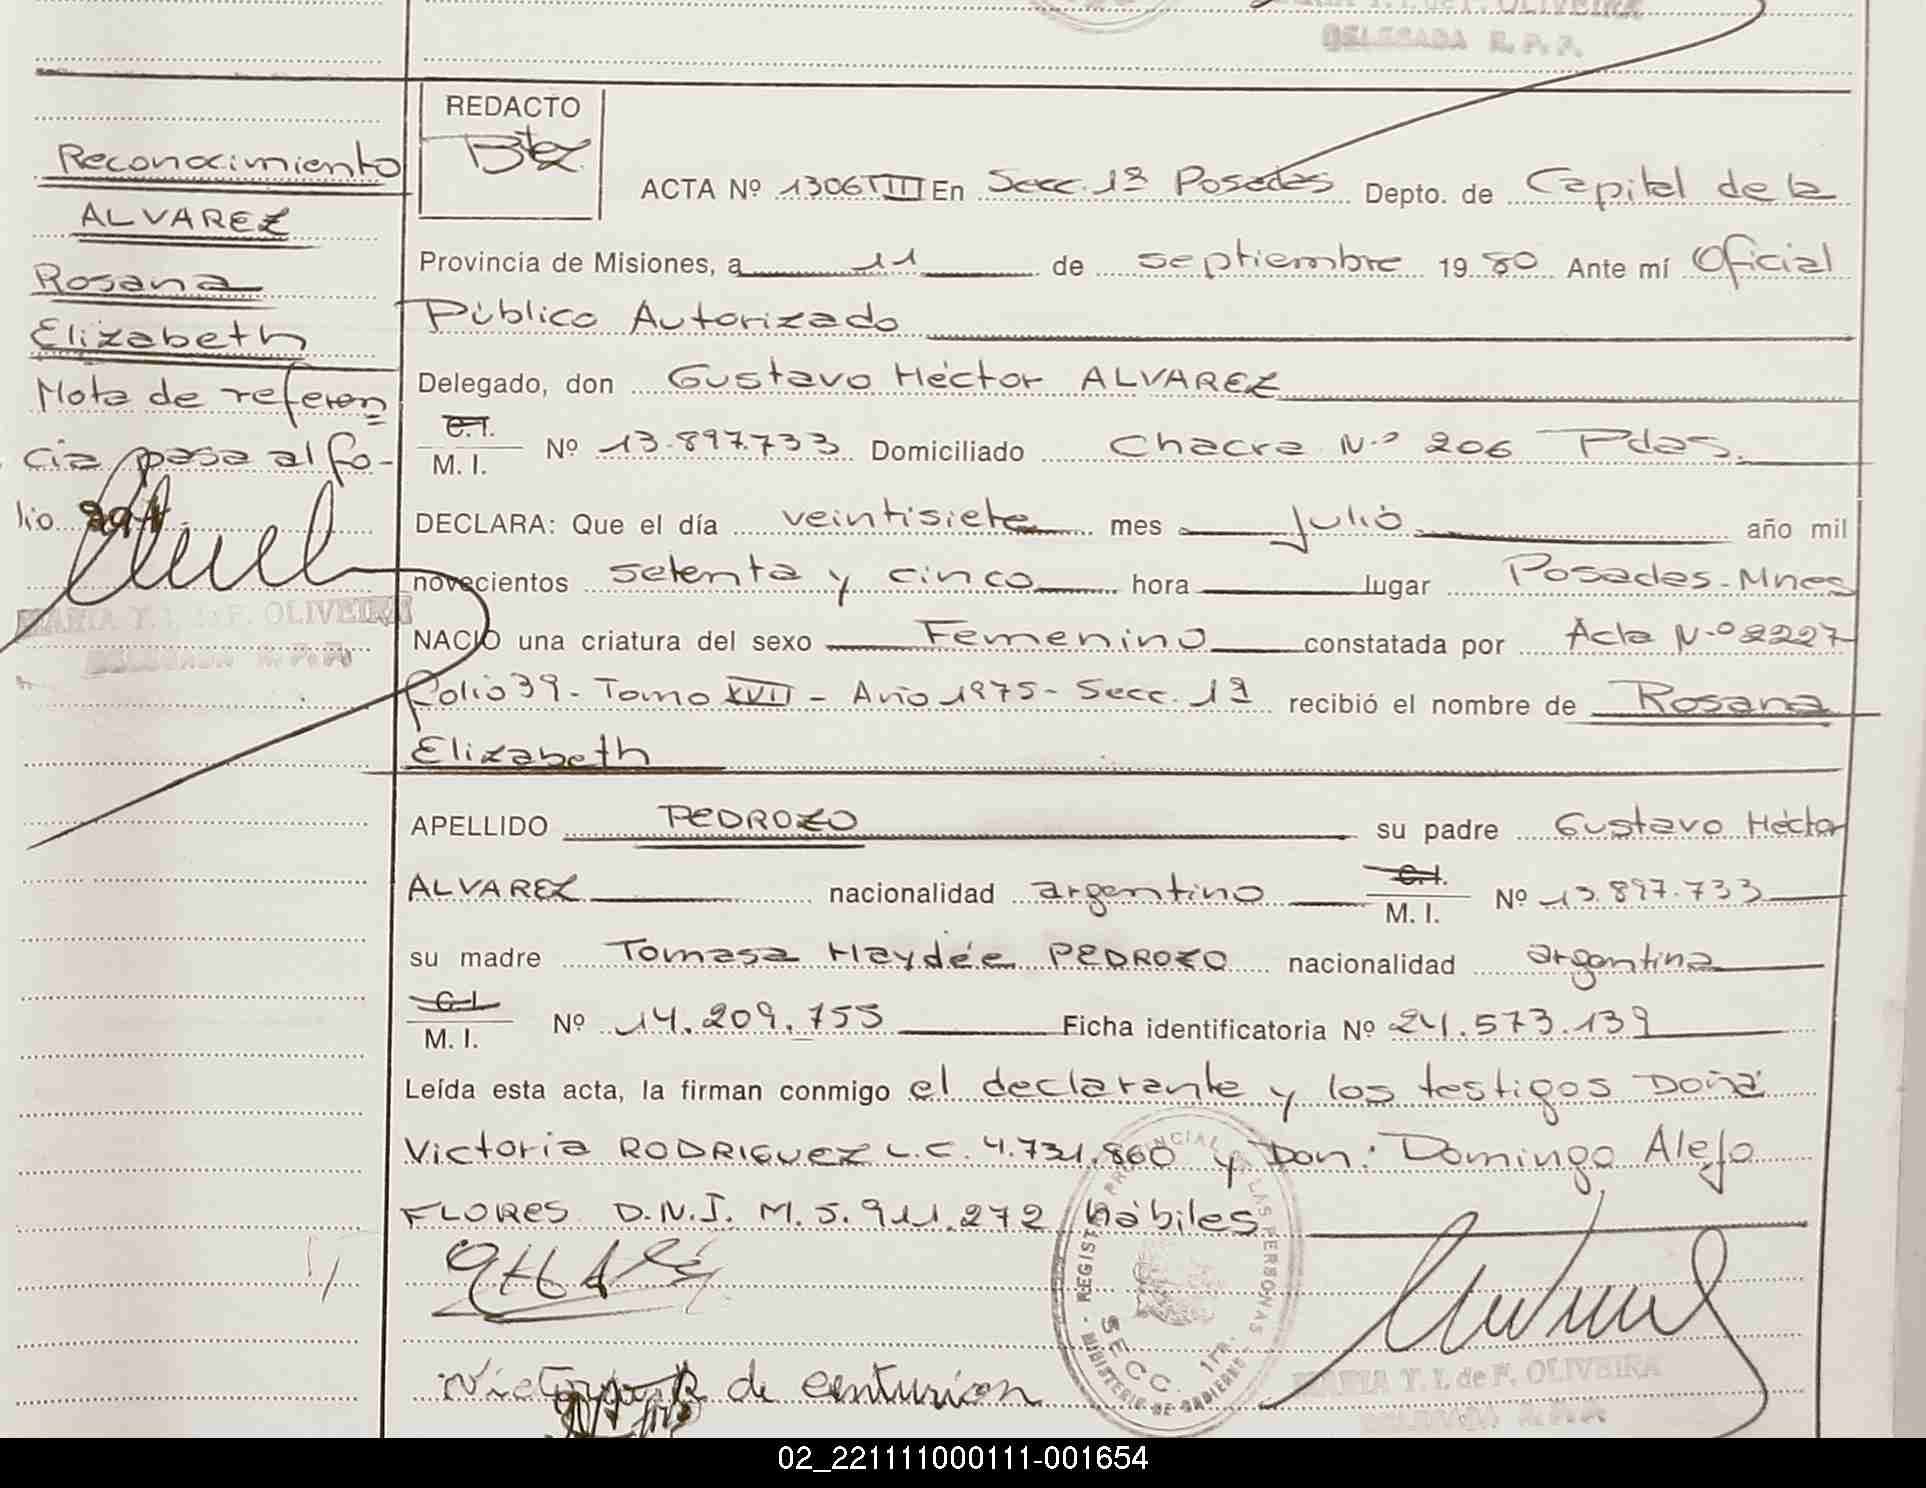 MARIA Y. I. de F. OLIVEIRA
DELEGADA R. P. P.
REDACTO
Btez.
Reconocimiento
ALVAREZ
Rosana
Elizabeth
Nota de referen
cia pasa al fo-
lio
MARIA Y. I. de F. OLIVEIRA
DELEGADA R. P. P.
ACTA Nº 1306 TIII En Secc. 1ª Posadas Depto. de Capital de la
Provincia de Misiones, a 11 de septiembre 1980 Ante mí Oficial
Público Autorizado
Delegado, don Gustavo Héctor ALVAREZ
C.I.
M. I. Nº 13.897.733 Domiciliado Chacra N.º 206 Pdas.
DECLARA: Que el día veintisiete mes Julio año mil
novecientos setenta y cinco hora lugar Posadas-Mnes
NACIO una criatura del sexo Femenino constatada por Acta N.º 2227
folio 39 - Tomo XVII - Año 1975 - Secc. 1ª recibió el nombre de Rosana
Elizabeth
APELLIDO PEDROZO su padre Gustavo Héctor
ALVAREZ nacionalidad argentino C.I. M. I. Nº 13.897.733
su madre Tomasa Haydée PEDROZO nacionalidad argentina
C.I.
M. I. Nº 14.209.755 Ficha identificatoria Nº 24.573.139
Leída esta acta, la firman conmigo el declarante y los testigos Doña
Victoria RODRIGUEZ L.C. 4.731.860 y Don: Domingo Alejo
FLORES D.N.I. M. 5.911.272 hábiles
REGISTRO PROVINCIAL DE LAS PERSONAS
SECC. 1ra.
MINISTERIO DE GOBIERNO
de centurion
MARIA Y. I. de F. OLIVEIRA
DELEGADA R. P. P.
02_221111000111-001654